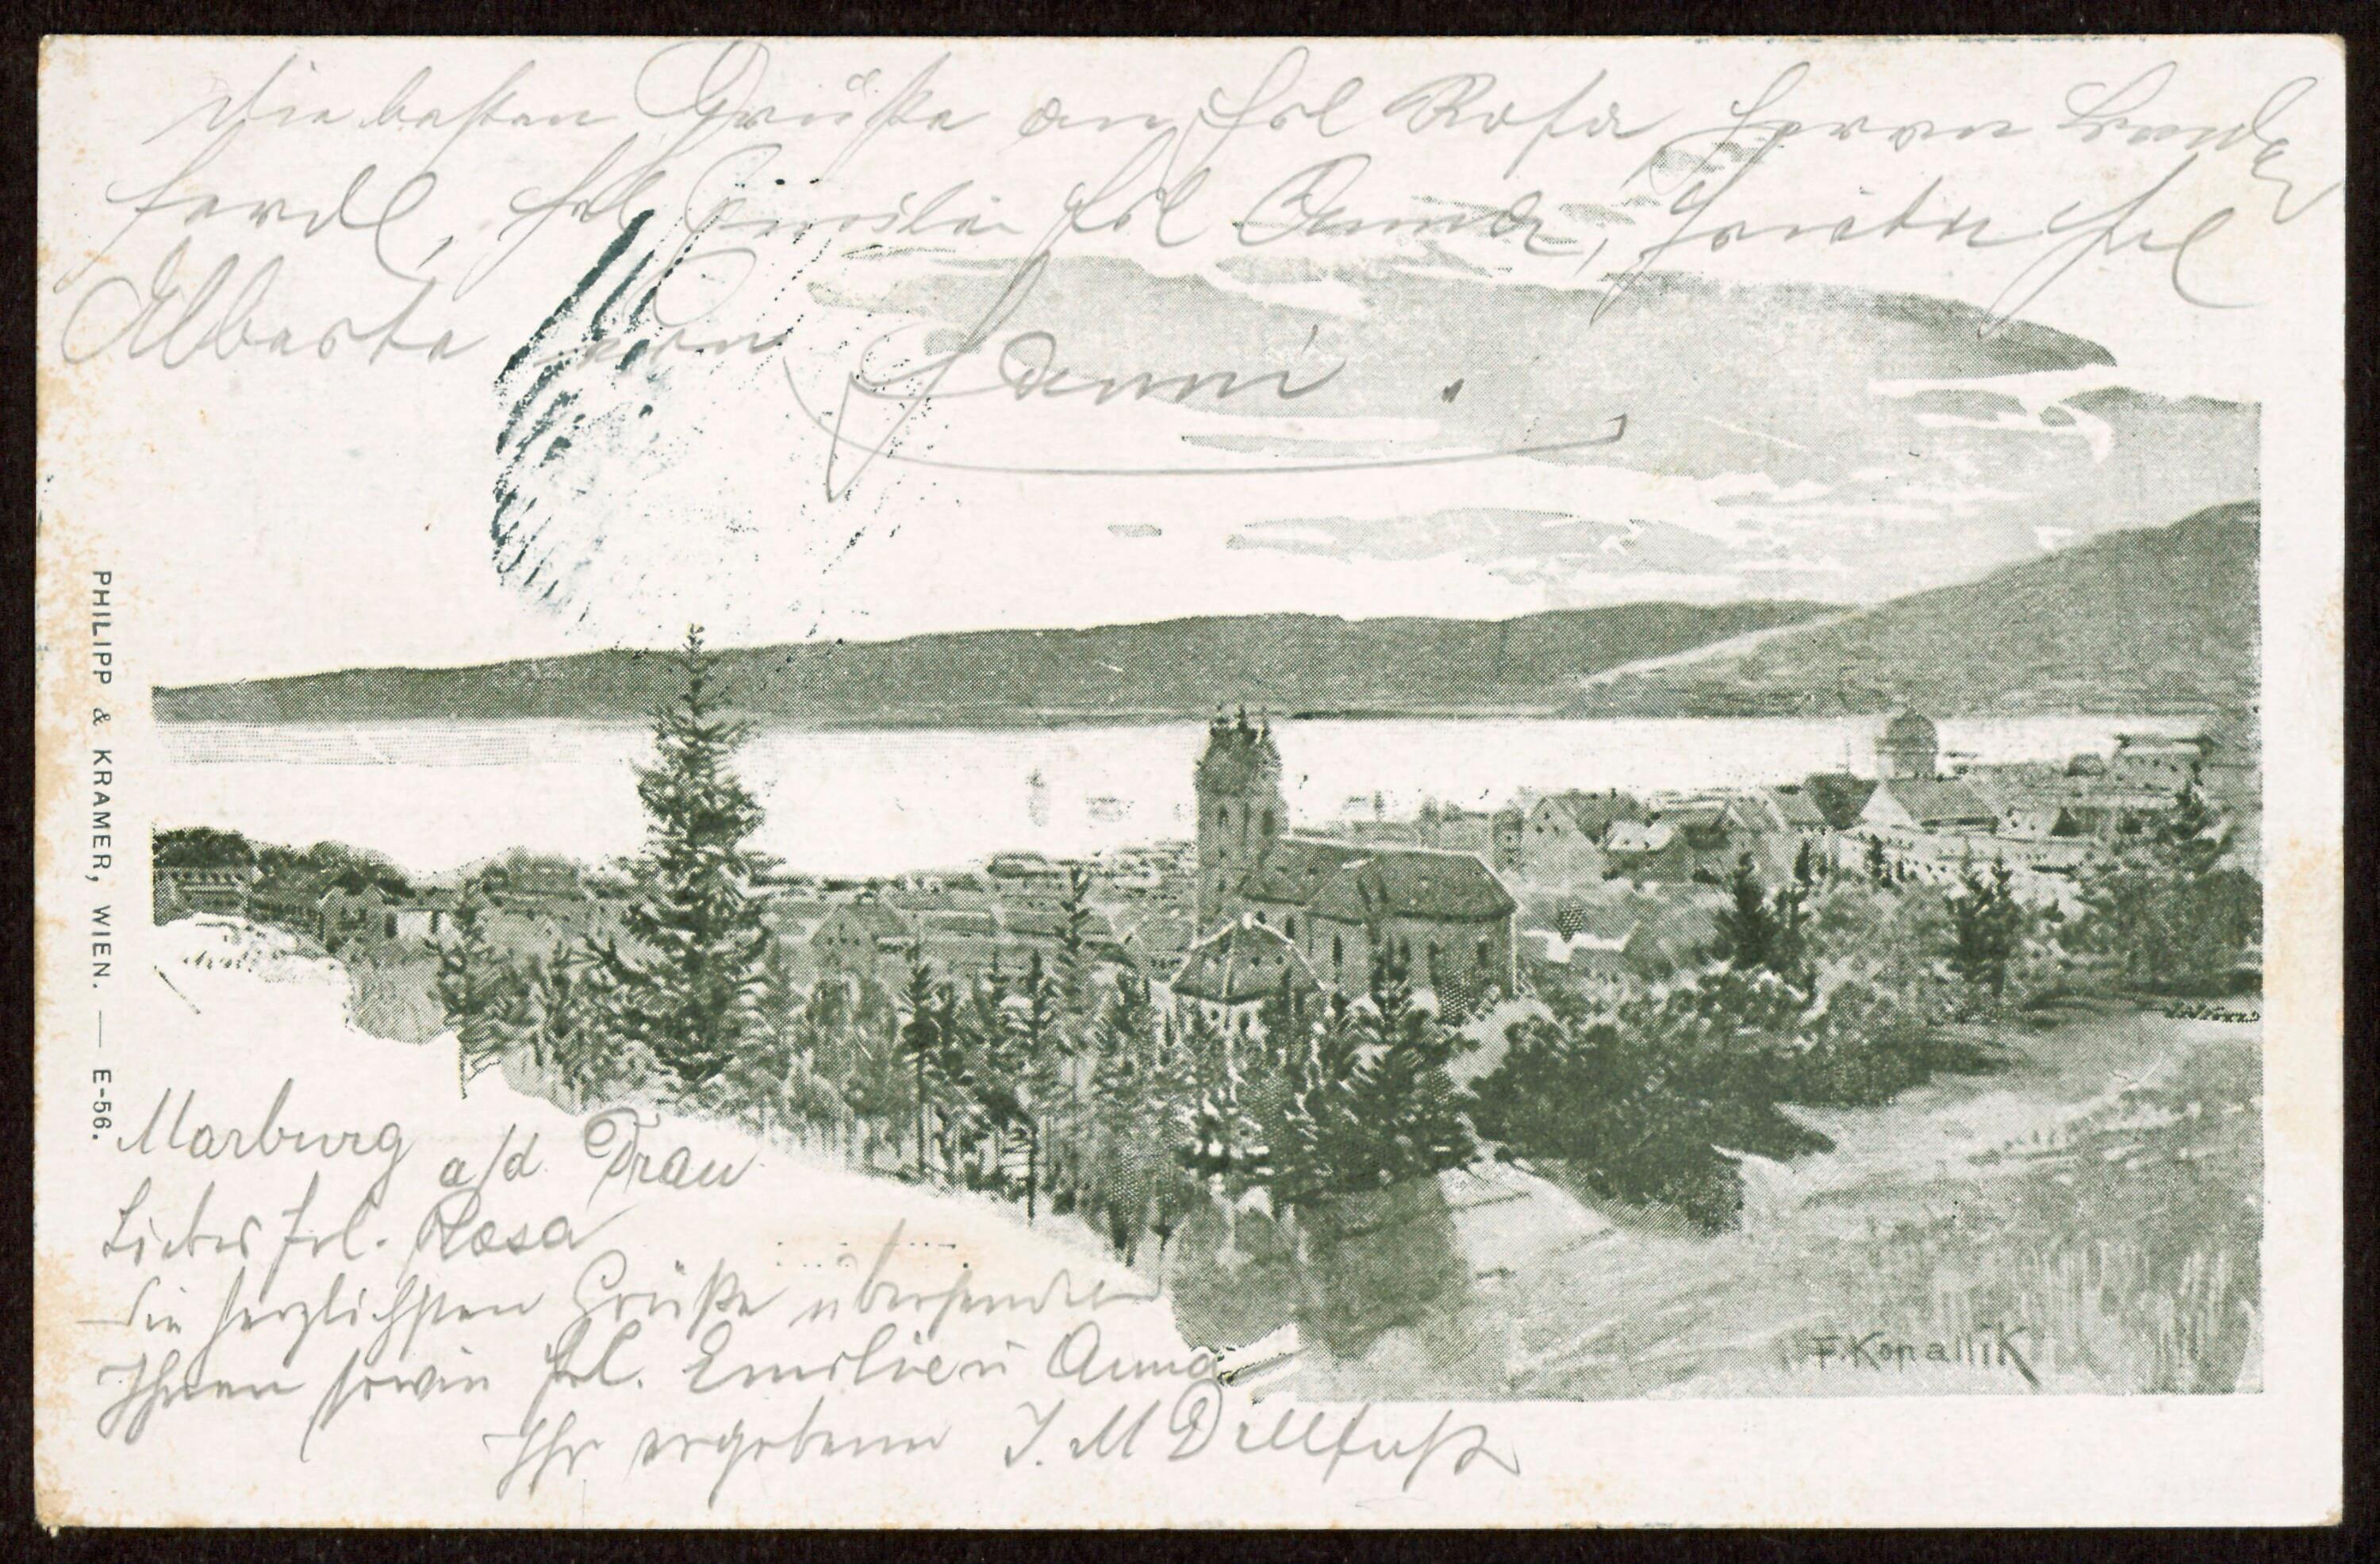 Die besten Grüße an Frl Rosa Herrn
Ferdl, Frl Emilie Frl Anna, Frl
Alberta von
Fanni
PHILIPP & KRAMER, WIEN. — E-56.
Marburg a/d Drau
Liebes Frl. Rosa
Die herzlichsten Grüße übersendet
Ihnen sowie Frl. Emilie u Anna
Ihr ergebener J. M Dillfuß
F. Konallik